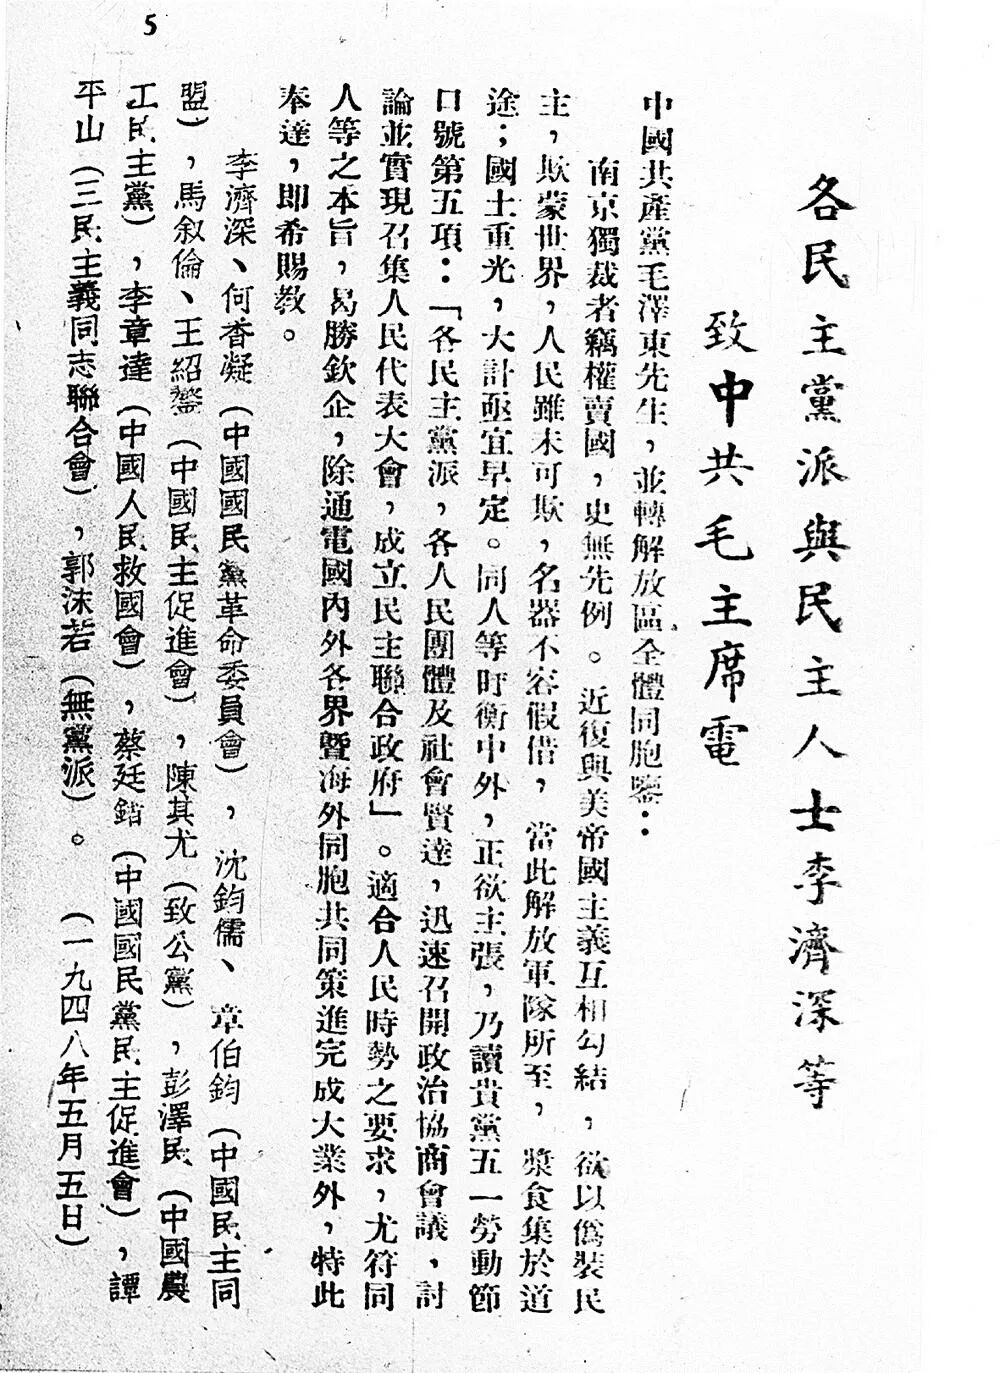 5
各民主黨派與民主人士李濟深等
致中共毛主席電
中國共產黨毛澤東先生，並轉解放區全體同胞鑒：
南京獨裁者竊權賣國，史無先例。近復與美帝國主義互相勾結，欲以僞裝民
主，欺蒙世界，人民雖未可欺，名器不容假借，當此解放軍隊所至，漿食集於道
途；國土重光，大計亟宜早定。同人等盱衡中外，正欲主張，乃讀貴黨五一勞動節
口號第五項：「各民主黨派，各人民團體及社會賢達，迅速召開政治協商會議，討
論並實現召集人民代表大會，成立民主聯合政府」。適合人民時勢之要求，尤符同
人等之本旨，曷勝欽企，除通電國內外各界暨海外同胞共同策進完成大業外，特此
奉達，即希賜教。
李濟深、何香凝（中國國民黨革命委員會），沈鈞儒、章伯鈞（中國民主同
盟），馬叙倫、王紹鏊（中國民主促進會），陳其尤（致公黨），彭澤民（中國農
工民主黨），李章達（中國人民救國會），蔡廷鍇（中國國民黨民主促進會），譚
平山（三民主義同志聯合會），郭沫若（無黨派）。（一九四八年五月五日）